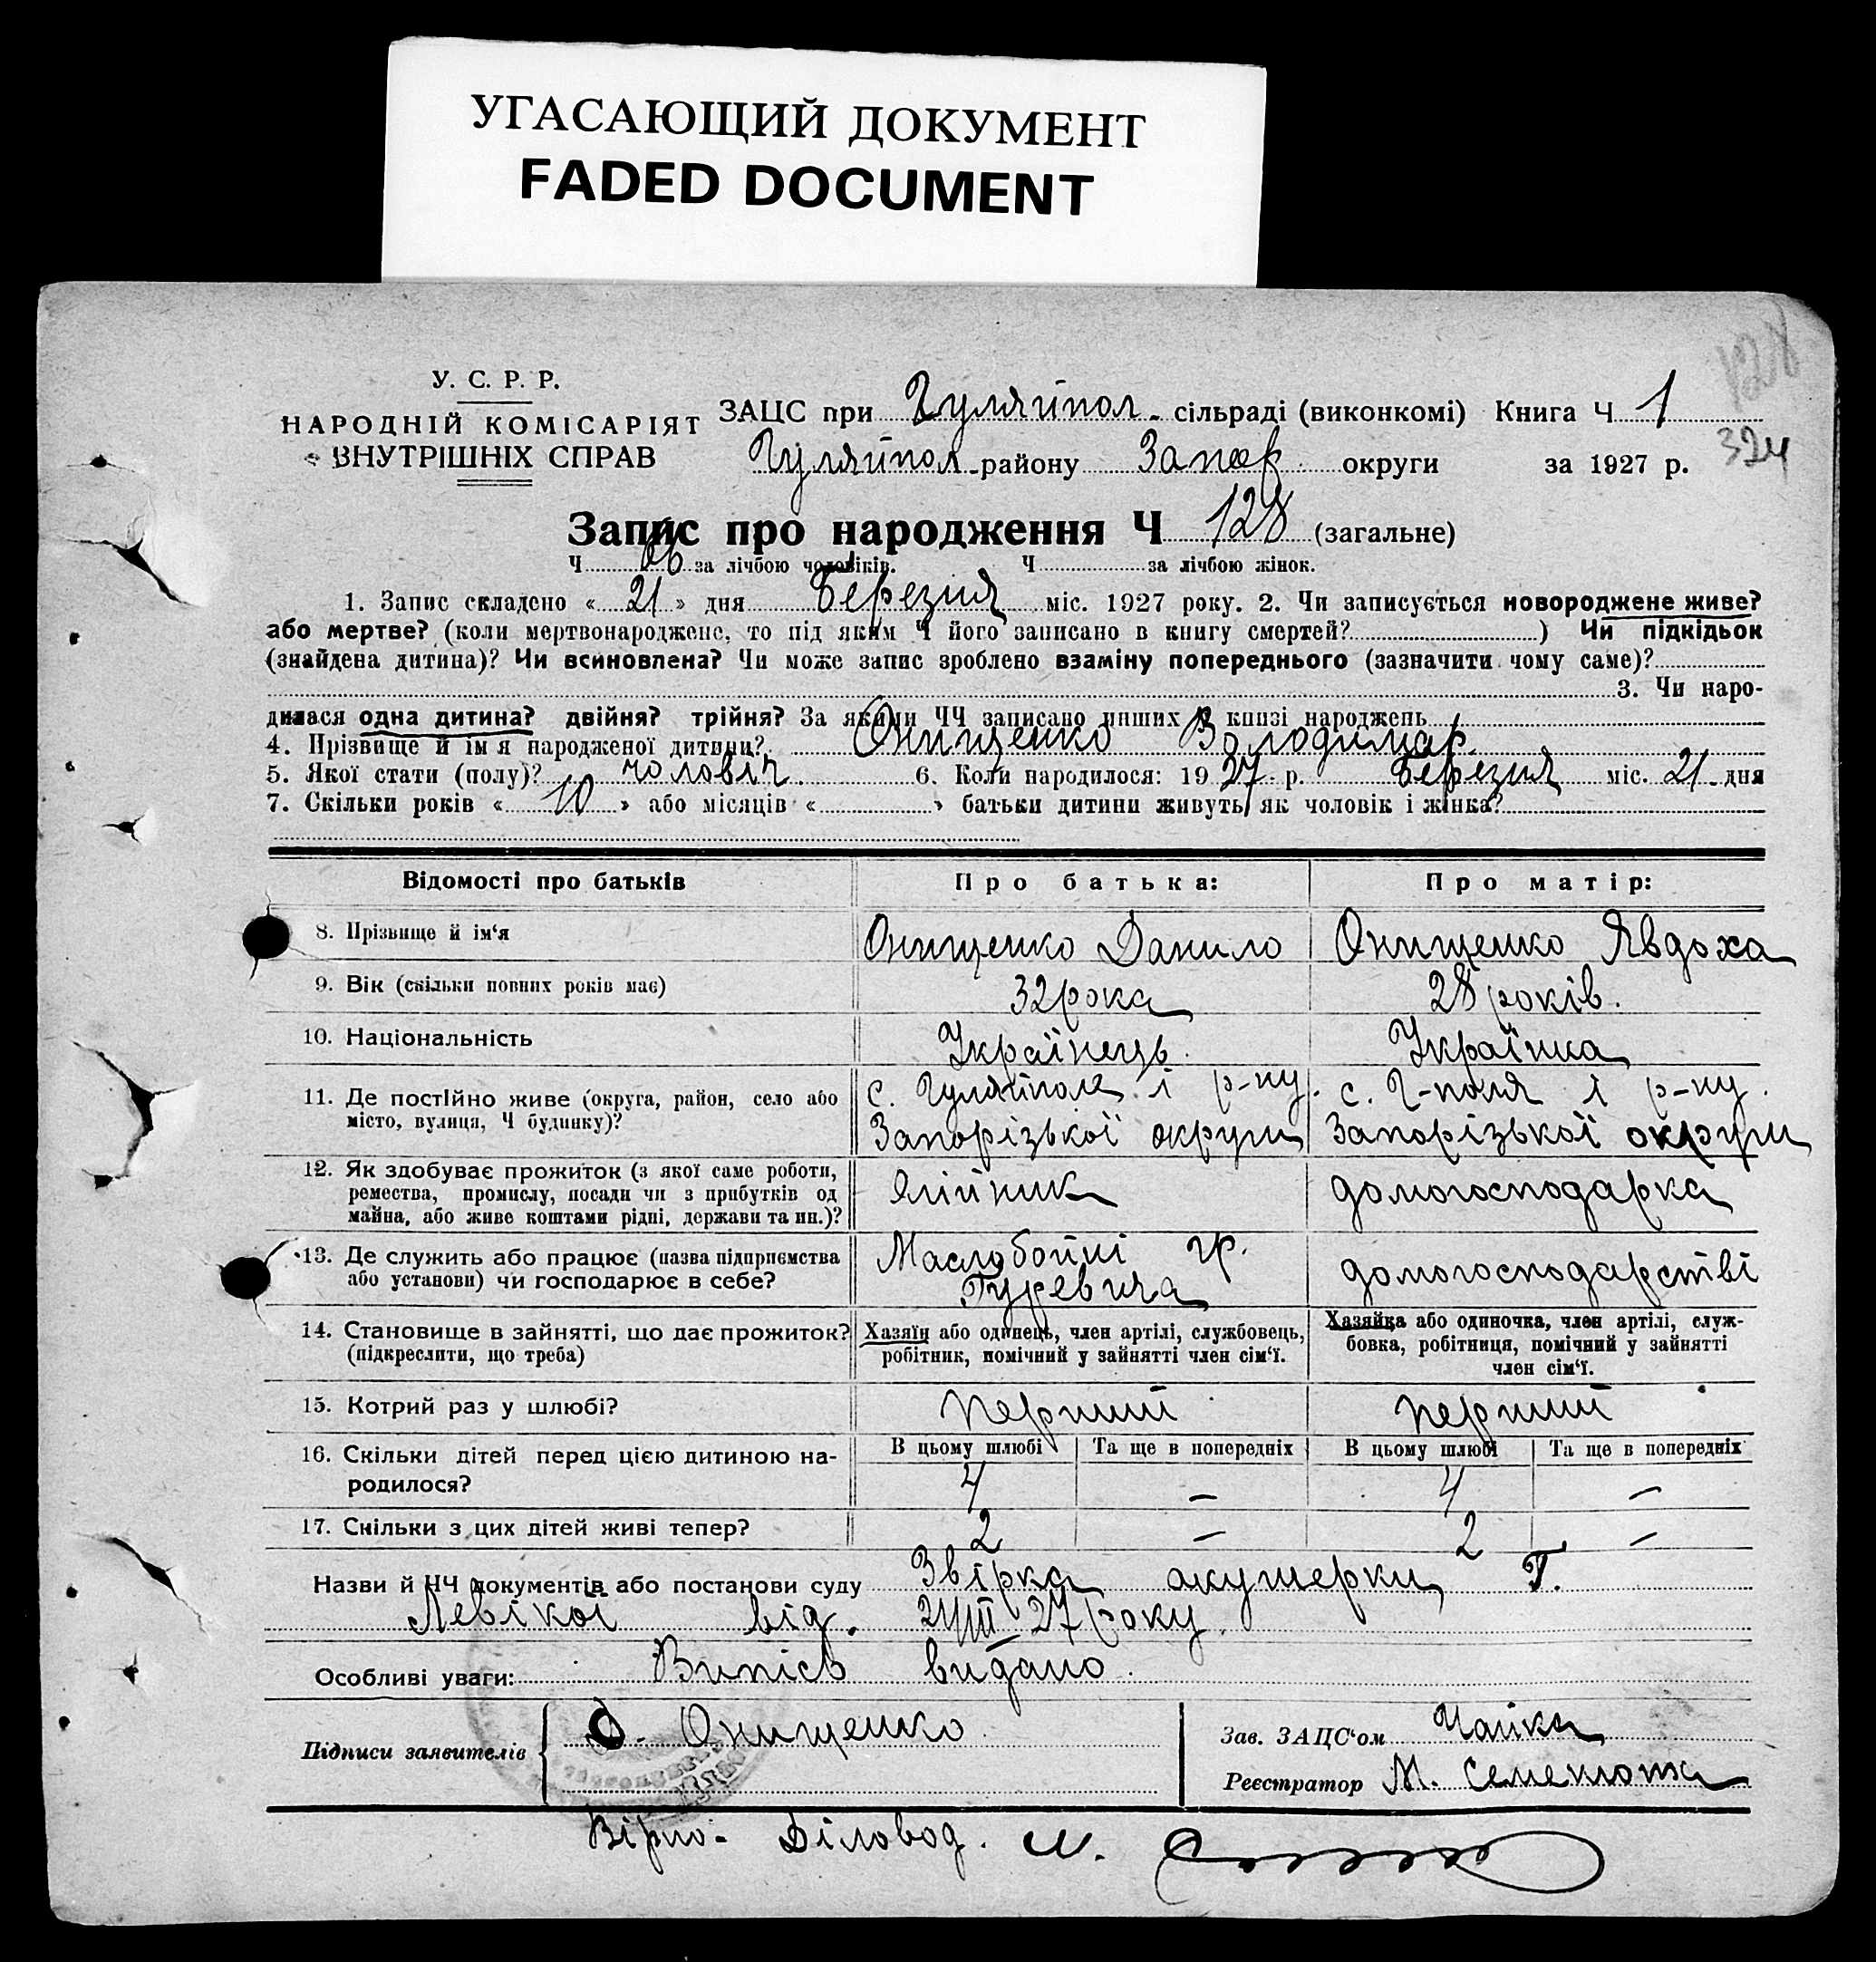 УГАСАЮЩИЙ ДОКУМЕНТ
FADED DOCUMENT
У. С. Р. Р.
НАРОДНІЙ КОМІСАРІЯТ
ВНУТРІШНІХ СПРАВ
ЗАЦС при Гуляйпол. сільраді (виконкомі) Книга Ч 1
Гуляйпол. району Запор. округи за 1927 р. 324
Запис про народження Ч 128 (загальне)
Ч 66 за лічбою чоловіків. Ч за лічбою жінок.
1. Запис складено « 21 » дня Березня міс. 1927 року. 2. Чи записується новороджене живе?
або мертве? (коли мертвонароджене, то під яким Ч його записано в книгу смертей? ) Чи підкідьок
(знайдена дитина)? Чи всиновлена? Чи може запис зроблено взаміну попереднього (зазначити чому саме)?
3. Чи наро-
дилася одна дитина? двійня? трійня? За якими ЧЧ записано инших в книзі народжень
4. Прізвище й ім'я народженої дитини? Онищенко Володимар
5. Якої стати (полу)? чоловіч. 6. Коли народилося: 1927 р. Березня міс. 21 дня
7. Скільки років « 10 » або місяців « » батьки дитини живуть як чоловік і жінка?
Відомості про батьків Про батька: Про матір:
8. Прізвище й ім'я Онищенко Данило Онищенко Явдоха
9. Вік (скільки повних років має) 32 рока 28 років.
10. Національність Українець. Українка
11. Де постійно живе (округа, район, село або с. Гуляйполя і р-ну. с. Г-поля і р-ну.
місто, вулиця, Ч будинку)? Запорізької округи Запорізької округи
12. Як здобуває прожиток (з якої саме роботи,
ремества, промислу, посади чи з прибутків од Олійник домогосподарка
майна, або живе коштами рідні, держави та ин.)?
13. Де служить або працює (назва підприємства Маслобойні гр.
або установи) чи господарює в себе? Гуревича домогосподарстві
14. Становище в зайнятті, що дає прожиток? Хазяїн або одинець, член артілі, службовець, Хазяйка або одиночка, член артілі, служ-
(підкреслити, що треба) робітник, помічний у зайнятті член сім'ї. бовка, робітниця, помічний у зайнятті
член сім'ї.
15. Котрий раз у шлюбі? перший перший
16. Скільки дітей перед цією дитиною на- В цьому шлюбі Та ще в попередніх В цьому шлюбі Та ще в попередніх
родилося? 4 – 4 –
17. Скільки з цих дітей живі тепер? 2 – 2 –
Назви й ЧЧ документів або постанови суду Звірка акушерки Г.
Левікої від. 21/III 27 року.
Особливі уваги: Випісь видано.
Підписи заявителів Онищенко Зав. ЗАЦС'ом Чайка
Реєстратор М. Семенюта
Вірно: Діловод.